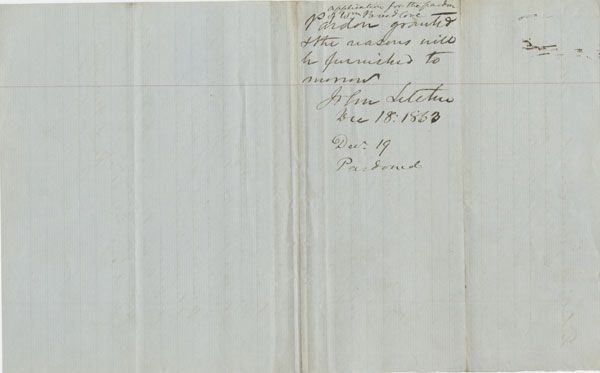 application for the pardon
of Wm Breedlove
Pardon granted
& the reasons will
be furnished to
morrow
John Letcher
Dec 18: 1863
Decr 19
Pardoned